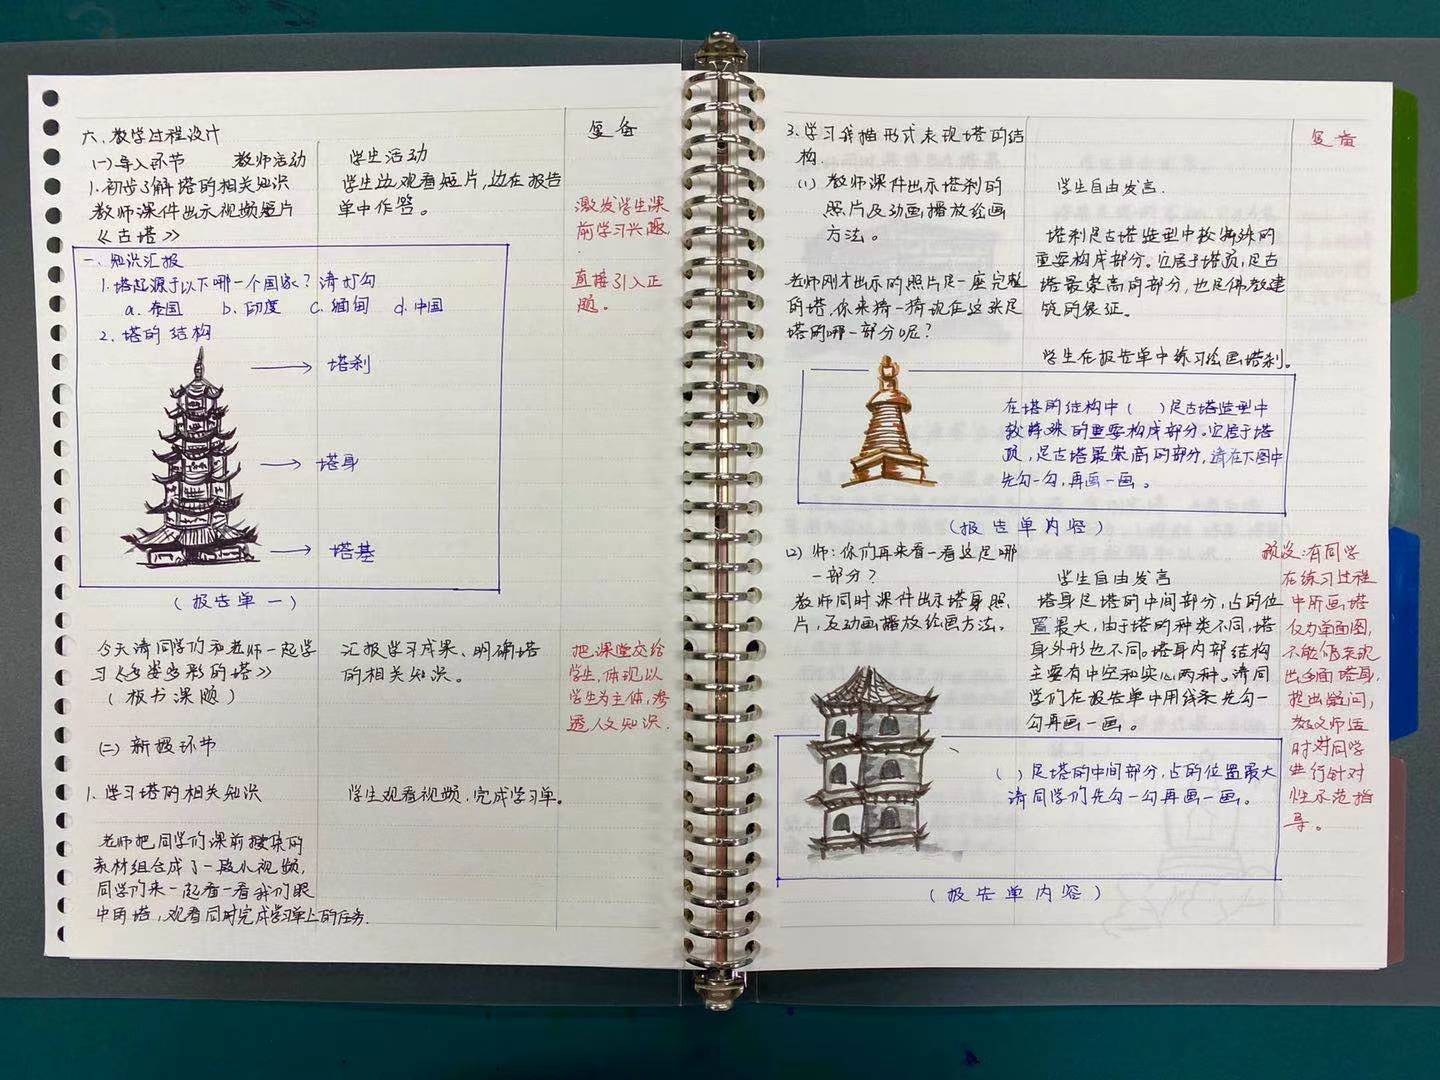 六、教学过程设计
(一)导入环节 教师活动
1.初步了解塔的相关知识
教师课件出示视频短片
《古塔》
学生活动
学生边观看短片,边在报告
单中作答。
复备
激发学生课
前学习兴趣.
直接引入正
题。
一、知识汇报
1.塔起源于以下哪一个国家?请打勾
a.泰国 b.印度 c.缅甸 d.中国
2.塔的结构
塔刹
塔身
塔基
(报告单一)
今天请同学们和老师一起学
习《多姿多彩的塔》
(板书课题)
汇报学习成果、明确塔
的相关知识。
把课堂交给
学生,体现以
学生为主体,渗
透人文知识.
(二)新授环节
1.学习塔的相关知识
学生观看视频,完成学习单。
老师把同学们课前搜集的
素材组合成了一段小视频,
同学们来一起看一看我们眼
中的塔,观看同时完成学习单上的任务.
3.学习线描形式表现塔的结
构.
(1) 教师课件出示塔刹的
照片及动画播放绘画
方法。
老师刚才出示的照片是一座完整
的塔,你来猜一猜现在这张是
塔的哪一部分呢?
学生自由发言.
塔刹是古塔造型中较特殊的
重要构成部分。它居于塔顶,是古
塔最崇高的部分,也是佛教建
筑的象征。
学生在报告单中练习绘画塔刹。
复备
在塔的结构中( )是古塔造型中
较特殊的重要构成部分。它居于塔
顶,是古塔最崇高的部分,请在下图中
先勾一勾,再画一画。
(报告单内容)
(2) 师:你们再来看一看这是哪
一部分?
教师同时课件出示塔身照
片,及动画播放绘画方法。
学生自由发言
塔身是塔的中间部分,占的位
置最大,由于塔的种类不同,塔
身外形也不同。塔身内部结构
主要有中空和实心两种。请同
学们在报告单中用线条先勾一
勾再画一画。
预设:有同学
在练习过程
中所画塔
仅为单面图,
不能够表现
出多面塔身,
提出疑问,
教师适
时对同学
进行针对
性示范指
导。
( )是塔的中间部分,占的位置最大
请同学们先勾一勾再画一画。
(报告单内容)